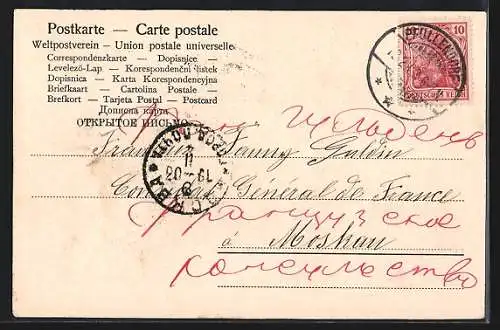 Postkarte — Carte postale
Weltpostverein — Union postale universelle
Correspondenzkarte — Dopisnice —
Levelező-Lap — Korespondenční listek
Dopisnica — Karta Korespondencyjna
Briefkaart — Cartolina Postale —
Brefkort — Tarjeta Postal — Postcard
Дописна карта
ОТКРЫТОЕ ПИСЬМО
10
PFULLENDORF
DEUTSCHES REICH
Fräulein Fanny Guldin
Consulat Général de France
Французское
à Moskau
консульство
МОСКВА
ГОРОД. ПОЧТА
11
2
19-03